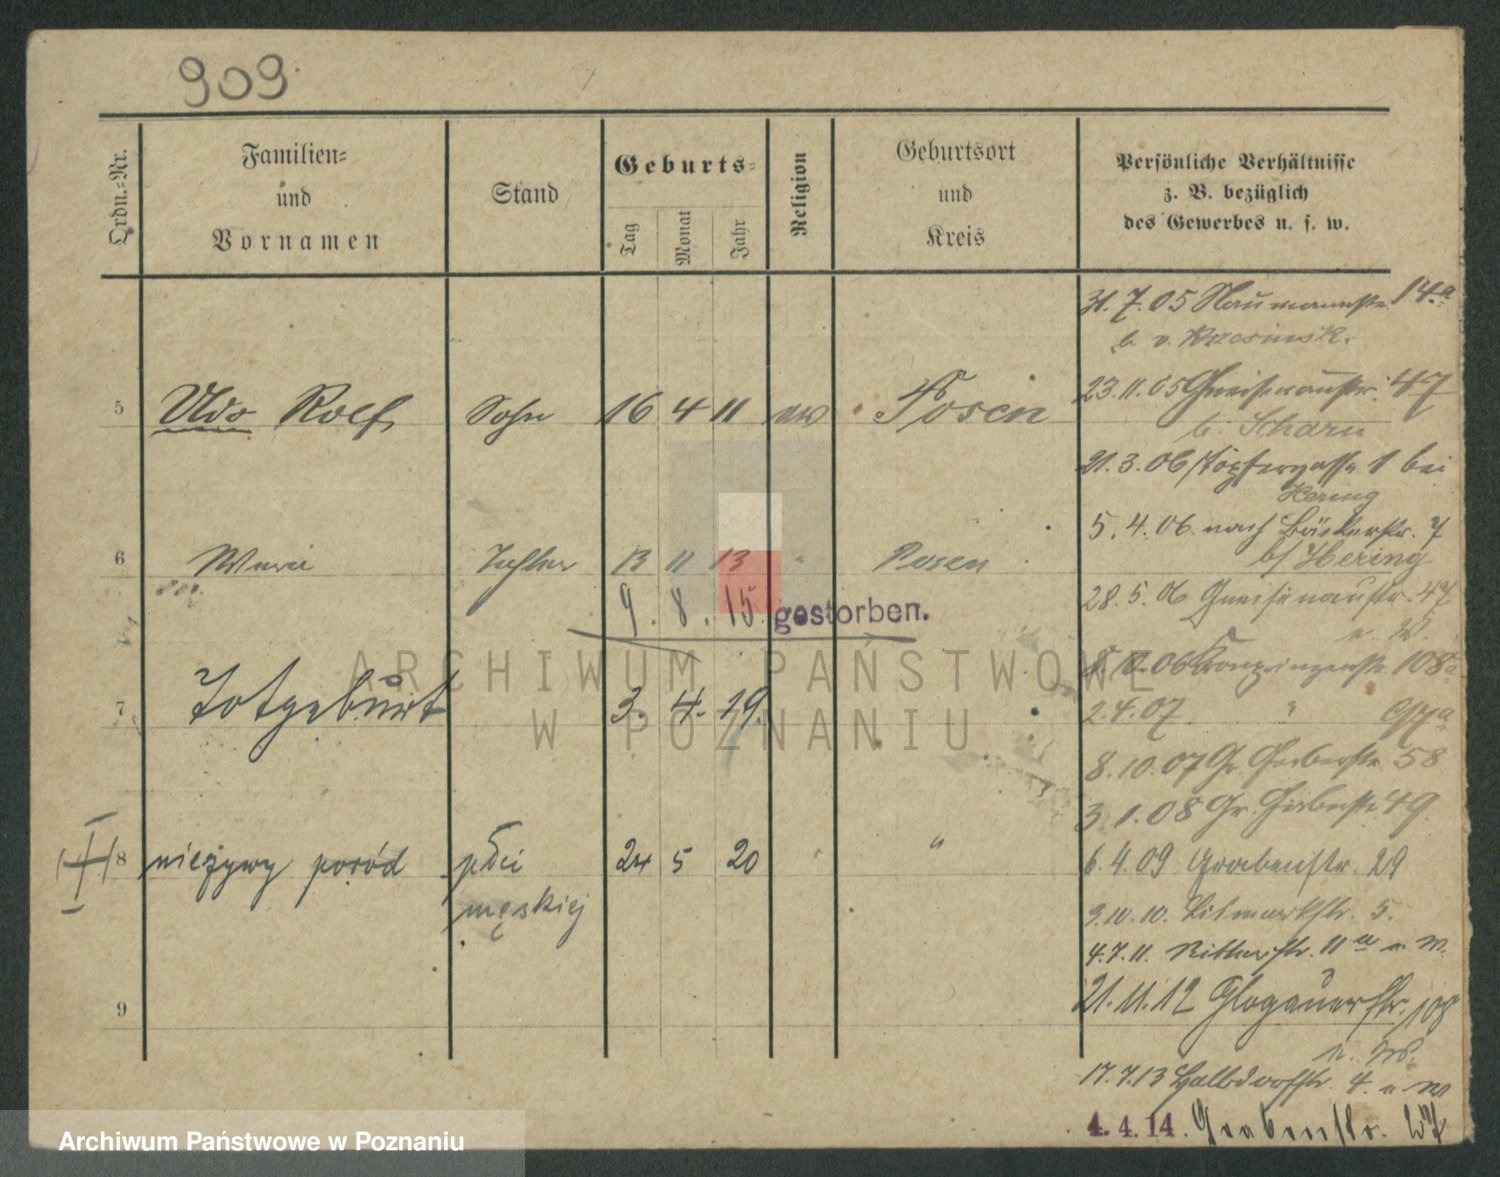 909
Ordn.-Nr.
Familien-
und
Vornamen
Stand
Geburts-
Tag
Monat
Jahr
Religion
Geburtsort
und
Kreis
Persönliche Verhältnisse
z. B. bezüglich
des Gewerbes u. s. w.
31.7.05 Naumannstr. 14a
b. v.
5 Udo Rolf Sohn 16 4 11 ev Posen
23.11.05 Gneisenaustr. 47
b. Scharn
21.3.06 Töpfergasse 1 bei
Hering
5.4.06 nach Bäckerstr. 7
b/ Hering
6 Tochter 13 11 13 " Posen
9. 8. 15 gestorben.
28.5.06 Gneisenaustr. 47
n. W.
06 Kronprinzenstr. 108a
7 Totgeburt 3. 4. 19.
2.4.07 " 97a
8.10.07 Gr. Gerberstr. 58
3.1.08 Gr. Gerberstr. 49
8 nieżywy poród płci 24 5 20 "
męskiej
6.4.09 Grabenstr. 29
3.10.10. Bismarkstr. 5.
4.7.11. Ritterstr. 11a n. W.
9
21.11.12 Glogauerstr. 108
n. W.
17.7.13 Halbdorfstr. 4. n. W
4.4.14. Grabenstr. 27
ARCHIWUM PAŃSTWOWE
W POZNANIU
Archiwum Państwowe w Poznaniu